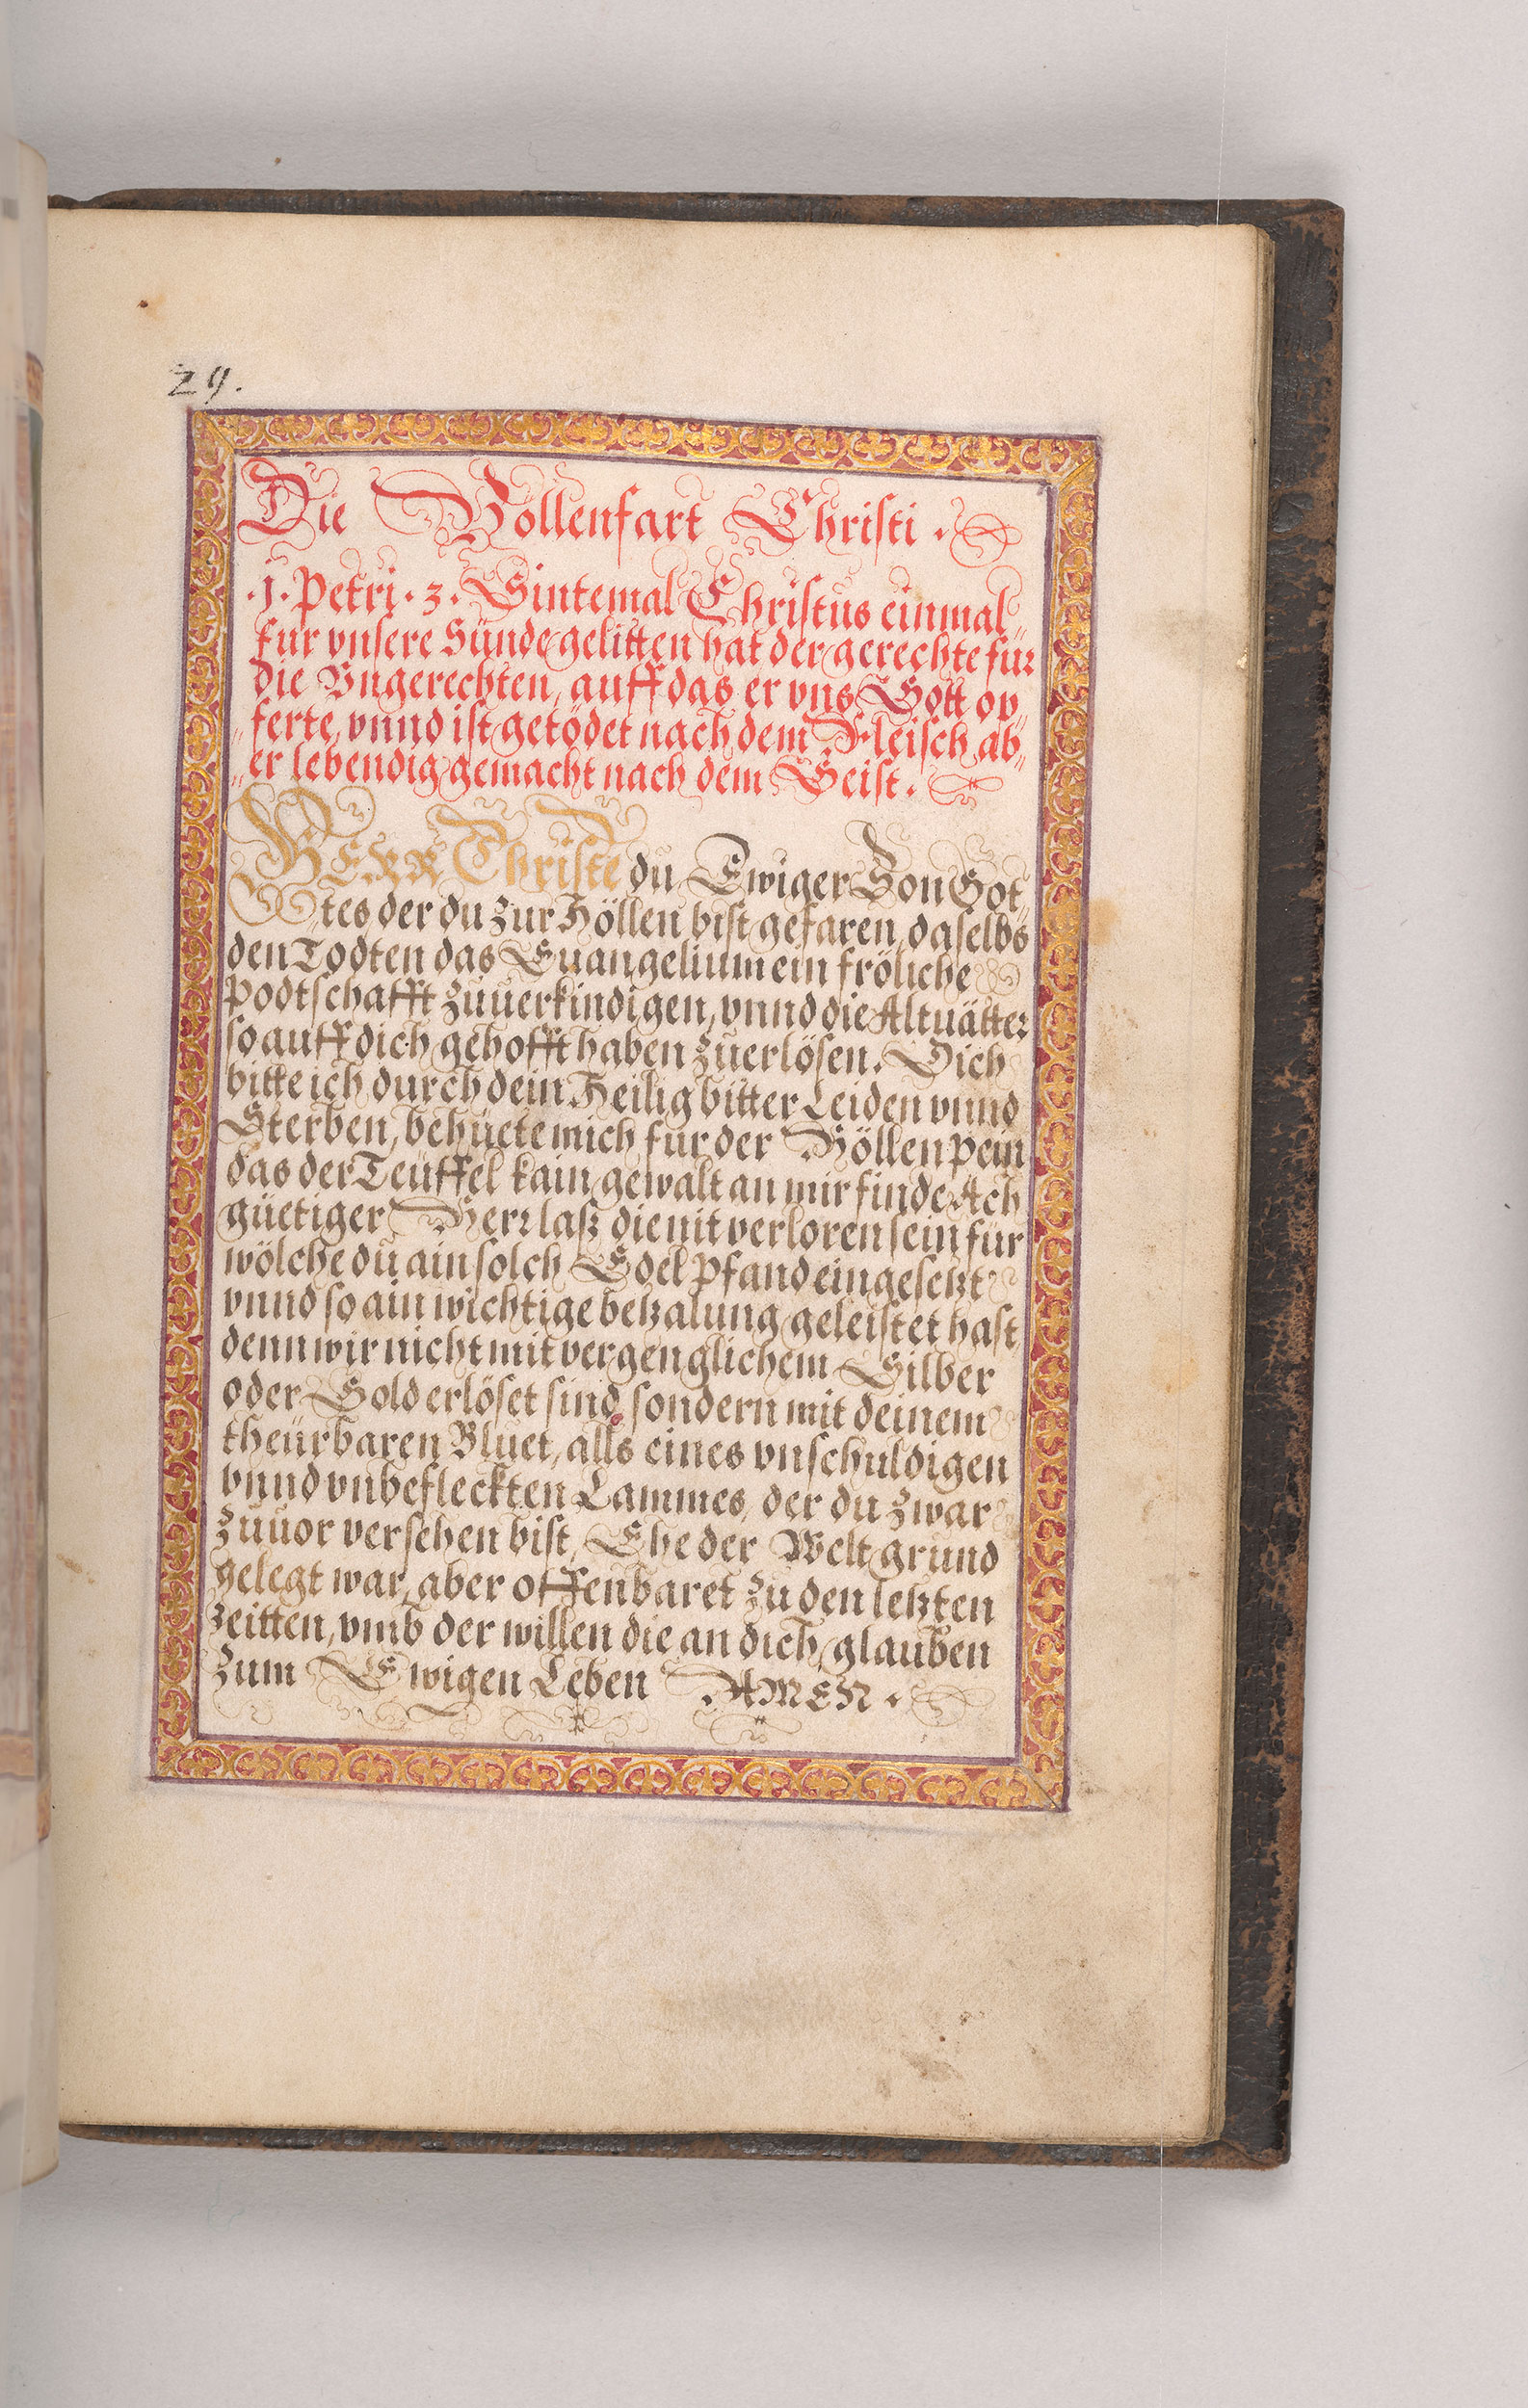 29.
Die Höllenfart Christi.
.1. Petri. 3. Sintemal Christus einmal
fur vnsere Sünde gelitten hat der gerechte für
die Vngerechten, auff das er vns Gott op„
„ferte, vnnd ist getödet nach dem Fleisch ab„
„er lebendig gemacht nach dem Geist.
HERR Christe du Ewiger Son Got„
tes der du zur Höllen bist gefaren, daselbs
den Todten das Euangelium ein fröliche
Podtschafft zuuerkindigen, vnnd die Altuätter
so auff dich gehofft haben zuerlösen. Dich
bitte ich durch dein Heilig bitter Leiden vnnd
Sterben, behüete mich fur der Höllen pein
das der Teüffel kain gewalt an mir finde Ach
güetiger Herr laß die nit verloren sein für
wölche du ain solch Edel Pfand eingesetzt
vnnd so ain wichtige betzalung geleistet hast,
denn wir nicht mit vergenglichem Silber
oder Gold erlöset sind, sondern mit deinem
theürbaren Bluet, alls eines vnschuldigen
vnnd vnbefleckten Lammes, der du zwar
zuuor versehen bist, Ehe der Welt grund
gelegt war, aber offenbaret zu den letzten
zeitten, vmb der willen die an dich glauben
zum Ewigen Leben AMEN.